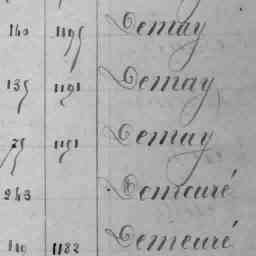 140 1195 Demay
135 1191 Demay
75 1191 Demay
243 Demeuré
110 1182 Demeuré